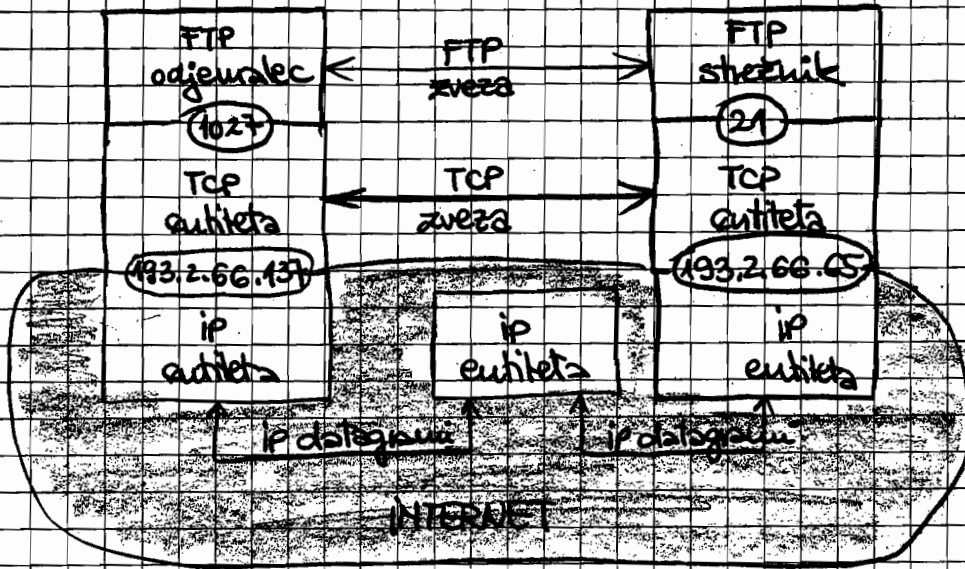 FTP
odjemalec
1027
TCP
entiteta
193.2.66.137
ip
entiteta
FTP
zveza
TCP
zveza
ip
entiteta
FTP
strežnik
21
TCP
entiteta
193.2.66.65
ip
entiteta
ip datagrami
ip datagrami
INTERNET